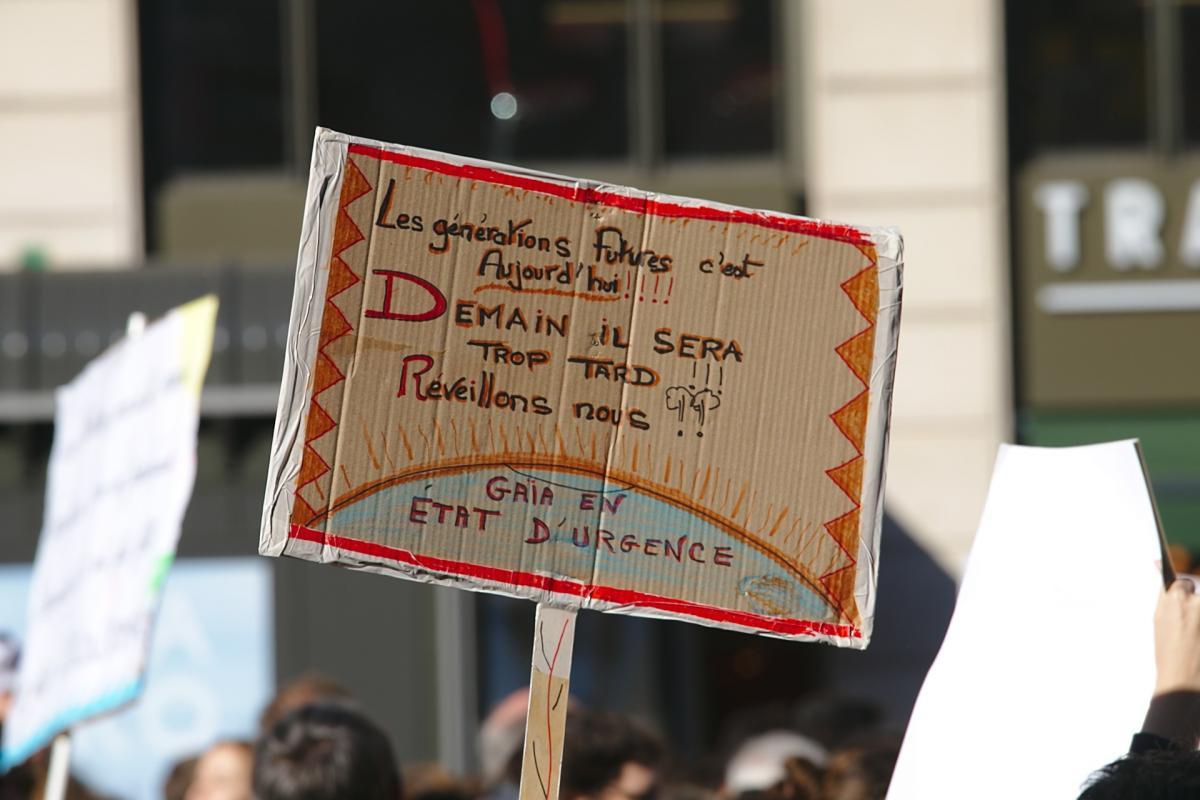 Les générations futures c'est
Aujourd'hui!!!!
DEMAIN iL SERA
TROP TARD !!!
Réveillons nous !!
GAÏA EN
ÉTAT D'URGENCE
TRA